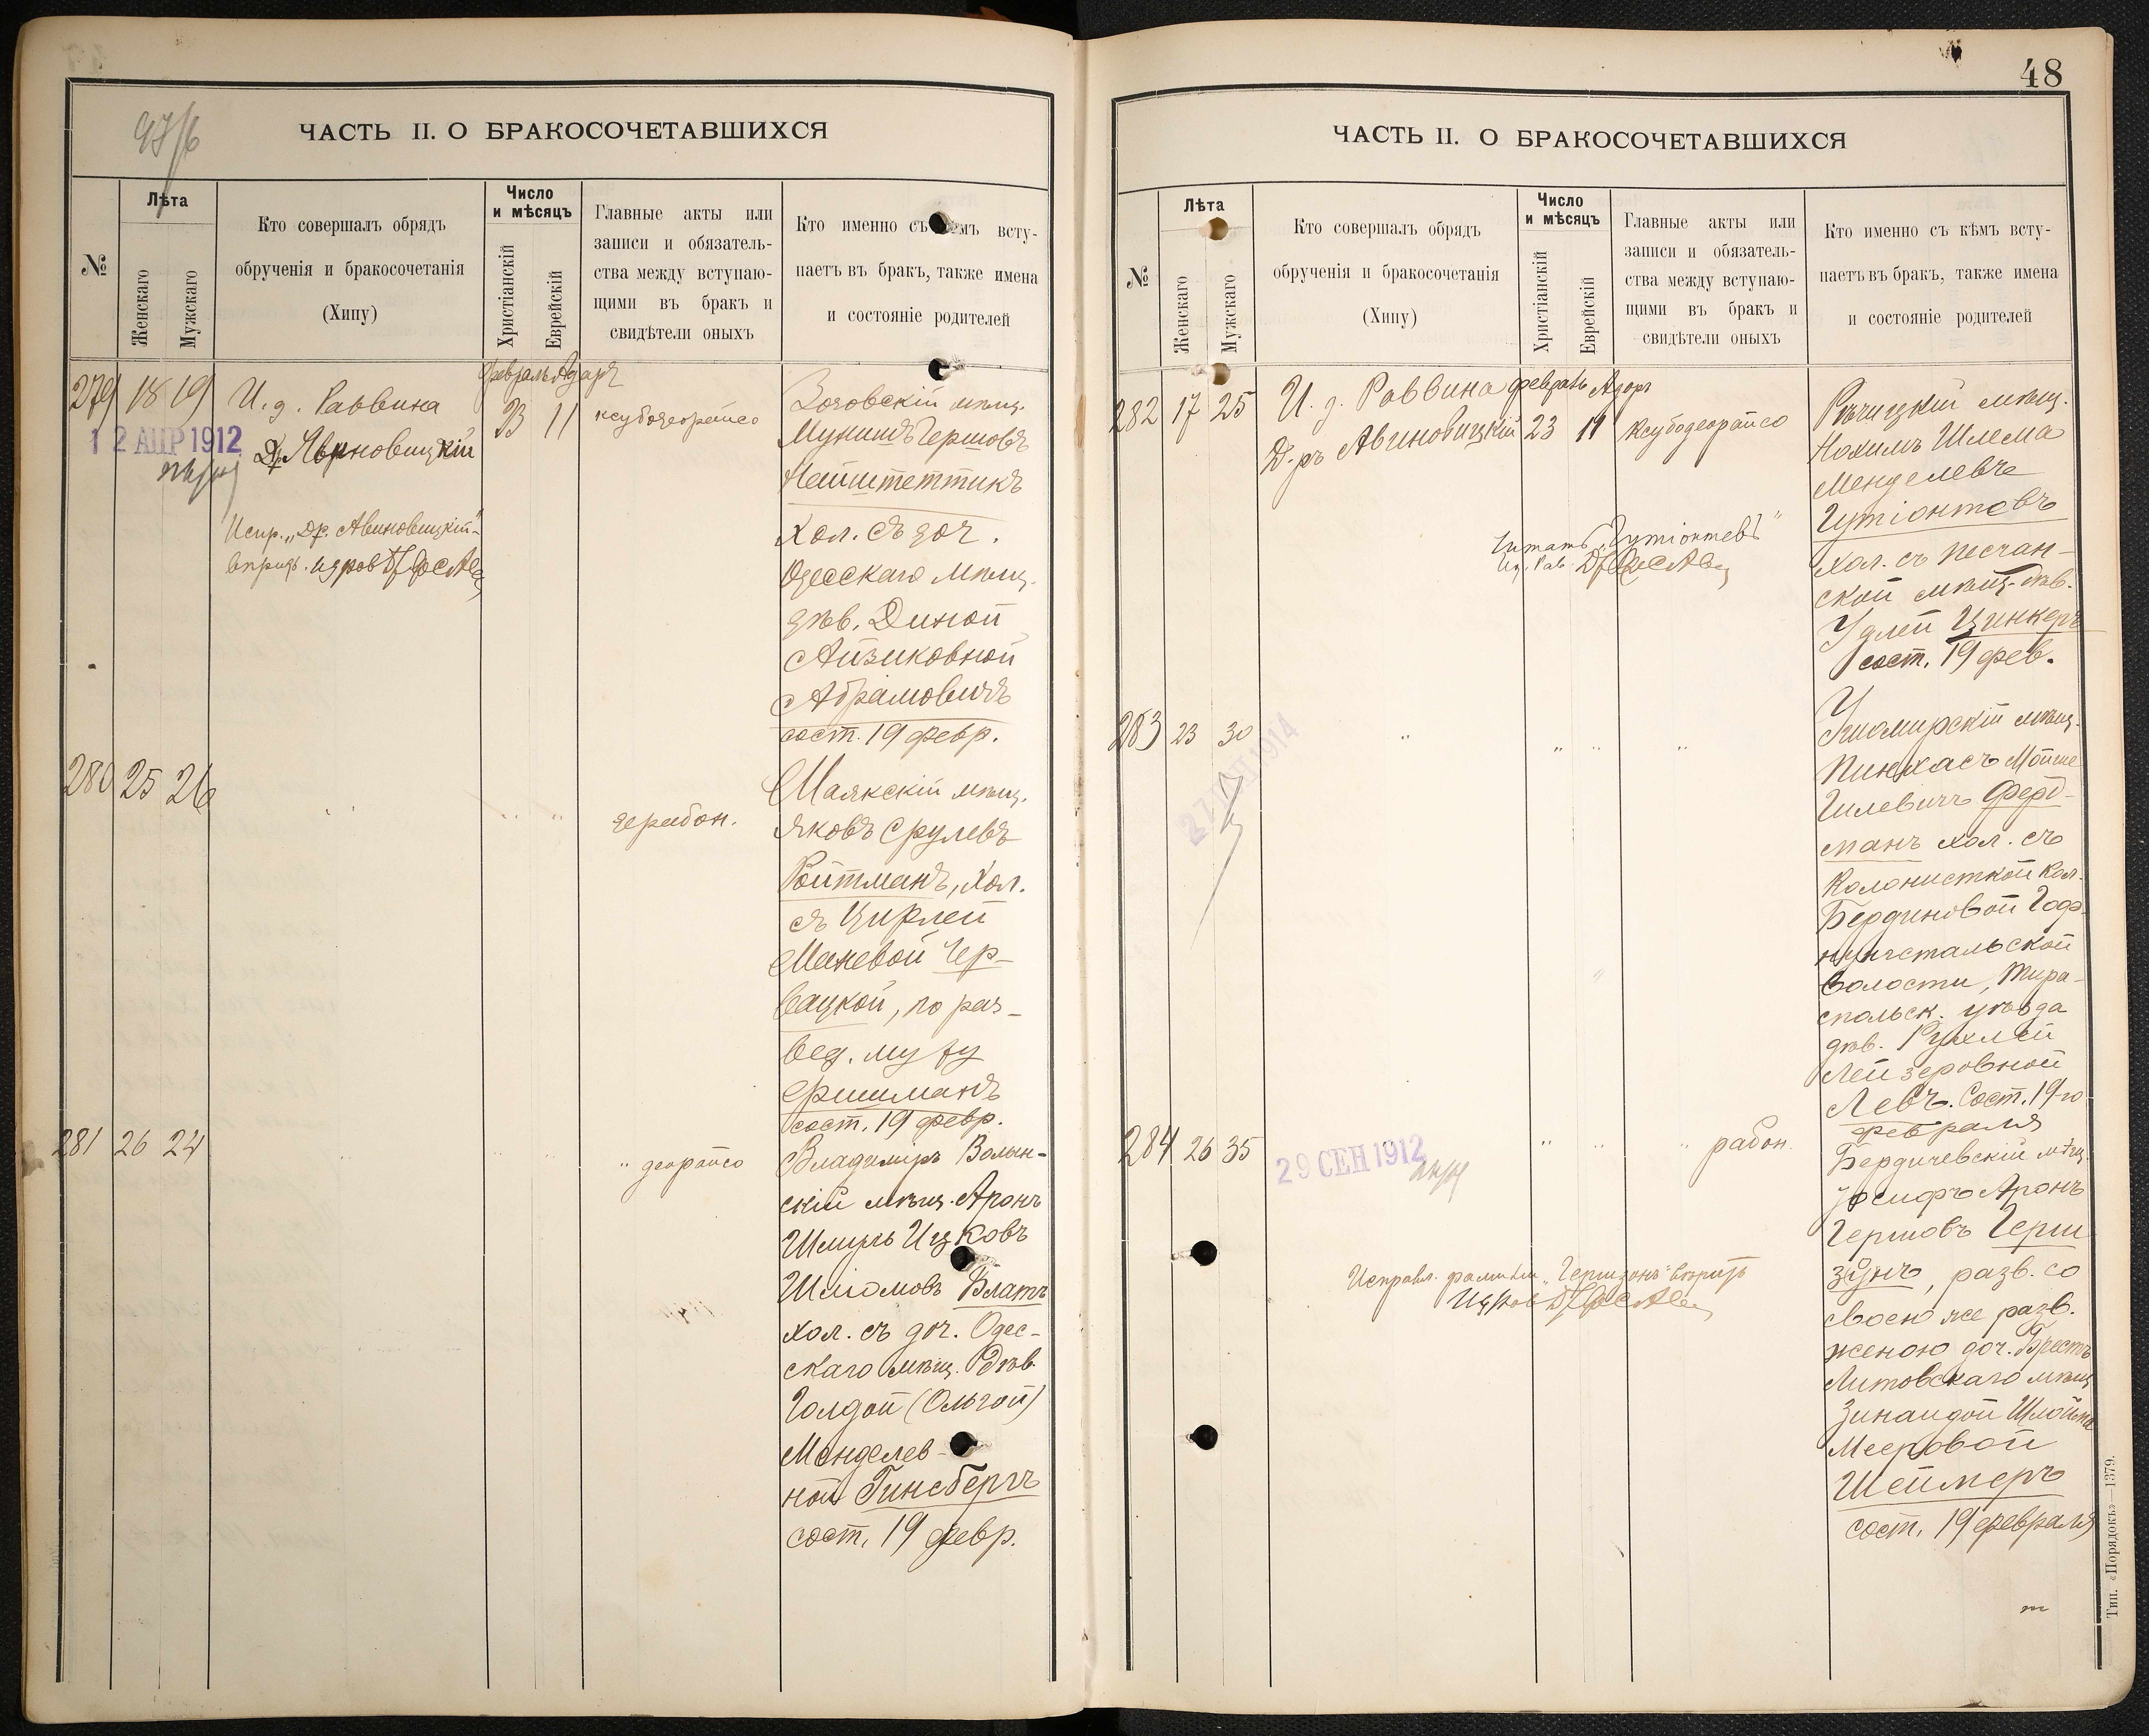 ЧАСТЬ II. О БРАКОСОЧЕТАВШИХСЯ
№
Лѣта
Женскаго
Мужскаго
Кто совершалъ обрядъ
обрученія и бракосочетанія
(Хипу)
Число
и мѣсяцъ
Христіанскій
Еврейскій
Главные акты или
записи и обязатель-
ства между вступаю-
щими въ бракъ и
свидѣтели оныхъ
Кто именно съ кѣмъ всту-
паетъ въ бракъ, также имена
и состояніе родителей
279 18 19
И. д. Раввина
Др. Авиновицкій
12 АПР 1912
Испр. „Др. Авиновицкій"
Февраль Адаръ
23 11
ксубодеорайсо
мѣщ.
Мунишъ Гершовъ
Нейштеттикъ
хол. съ доч.
Одесскаго мѣщ.
дѣв. Диной
Айзиковной
Абрамовичъ
сост. 19 февр.
280 25 26
" "
дерабон.
Маякскій мѣщ.
Яковъ Срулевъ
Ройтманъ, хол.
съ Цирлей
Маневой Чер-
вацкой, по раз-
вед. мужу
Фишманъ
сост. 19 февр.
281 26 24
" деорайсо
Владимиръ Волын-
скій мѣщ. Аронъ
Шмуль Ицковъ
Шліомовъ Блатъ
хол. съ доч. Одес-
скаго мѣщ. дѣв.
Голдой (Ольгой)
Менделев-
ной Гинсбергъ
сост. 19 февр.
48
ЧАСТЬ II. О БРАКОСОЧЕТАВШИХСЯ
№
Лѣта
Женскаго
Мужскаго
Кто совершалъ обрядъ
обрученія и бракосочетанія
(Хипу)
Число
и мѣсяцъ
Христіанскій
Еврейскій
Главные акты или
записи и обязатель-
ства между вступаю-
щими въ бракъ и
свидѣтели оныхъ
Кто именно съ кѣмъ всту-
паетъ въ бракъ, также имена
и состояніе родителей
282 17 25
И. д. Раввина
Д-ръ Авиновицкій
февраль Адаръ
23 11
ксубодеорайсо
Читать „Гутіонтовъ"
Рѣчицкій мѣщ.
Нохимъ Шлема
Менделевъ
Гутіонтовъ
хол. съ песчан-
ской мѣщ. дѣв.
Удлей Цинкеръ
сост. 19 фев.
283 23 30
" " " "
мѣщ.
Пинхасъ Мойше
Гилевичъ Ферд-
манъ хол. съ
колонисткой кол.
Бердиновой Гоф-
нунгстальской
волости, Тира-
спольск. уѣзда
дѣв. Рухлей
Лейзеровной
Левъ. Сост. 19-го
февраля
284 26 35
29 СЕН 1912
" " " рабон.
Исправл. фамилія „Гершзонъ"
Бердичевскій мѣщ.
Іосифъ Аронъ
Гершовъ Герш
зонъ, разв. со
своею же разв.
женою доч. Брестъ
Литовскаго мѣщ.
Зинаидой Шлойма
Мееровой
Шеймеръ
сост. 19 февраля
Тип. «Порядокъ»—1379.